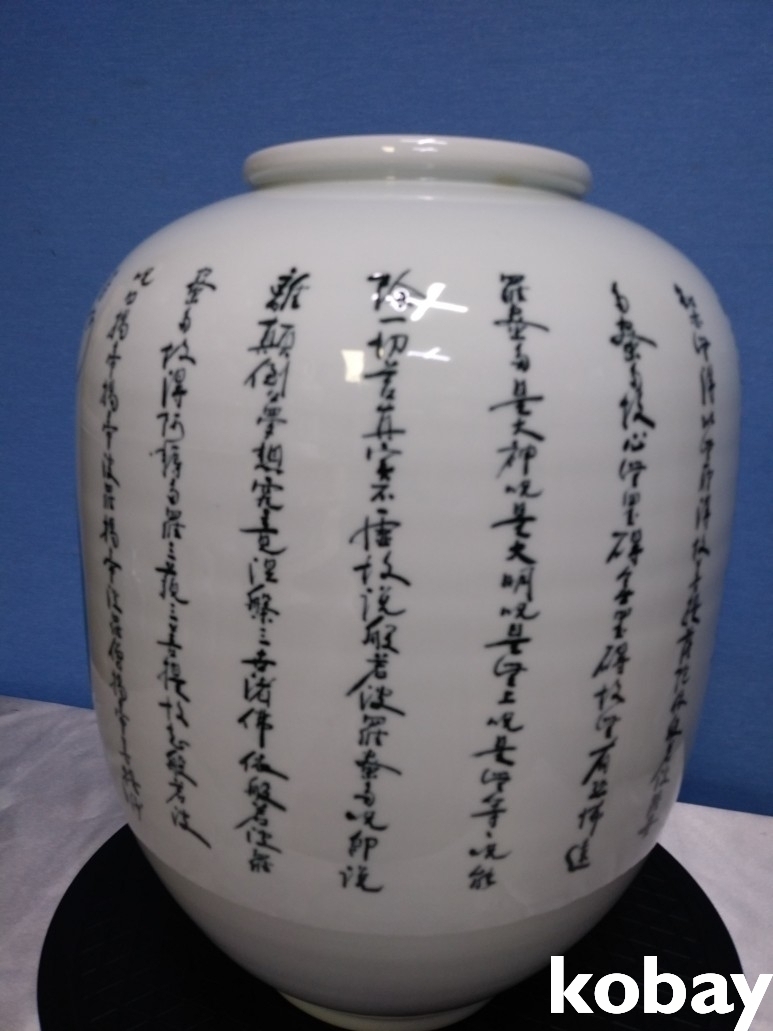 智亦無得以無所得故菩提薩埵依般若波羅
蜜多故心無罣碍無罣碍故無有恐怖遠
羅蜜多是大神呪是大明呪是無上呪是無等々呪能
除一切苦真實不虛故説般若波羅蜜多呪即説
離顛倒夢想究竟涅槃三世諸佛依般若波羅
蜜多故得阿耨多羅三藐三菩提故知般若波
呪曰揭帝揭帝波羅揭帝波羅僧揭帝菩提
kobay